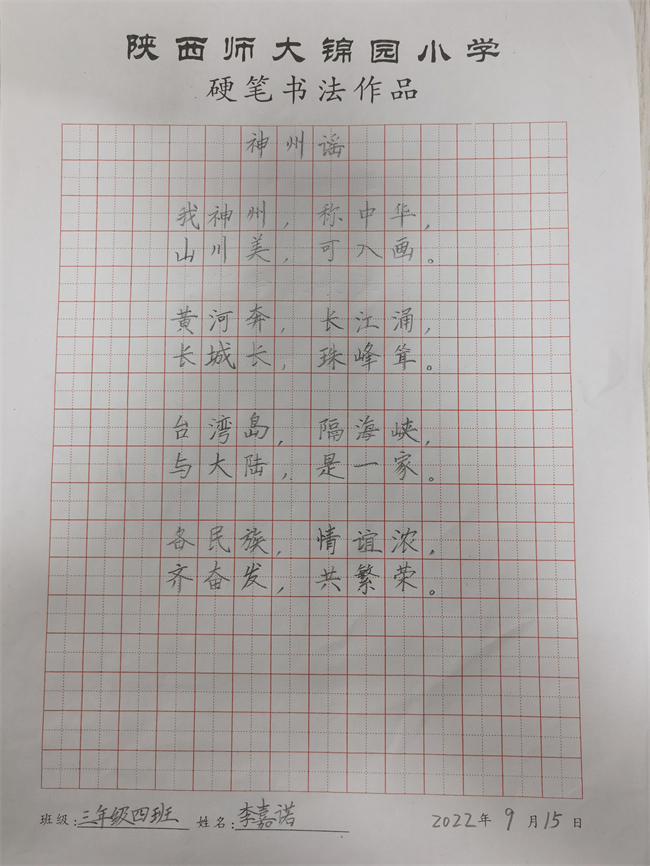 陕西师大锦园小学
硬笔书法作品
神州谣
我神州，称中华，
山川美，可入画。
黄河奔，长江涌，
长城长，珠峰耸。
台湾岛，隔海峡，
与大陆，是一家。
各民族，情谊浓，
齐奋发，共繁荣。
班级：三年级四班 姓名：李嘉诺 2022年9月15日